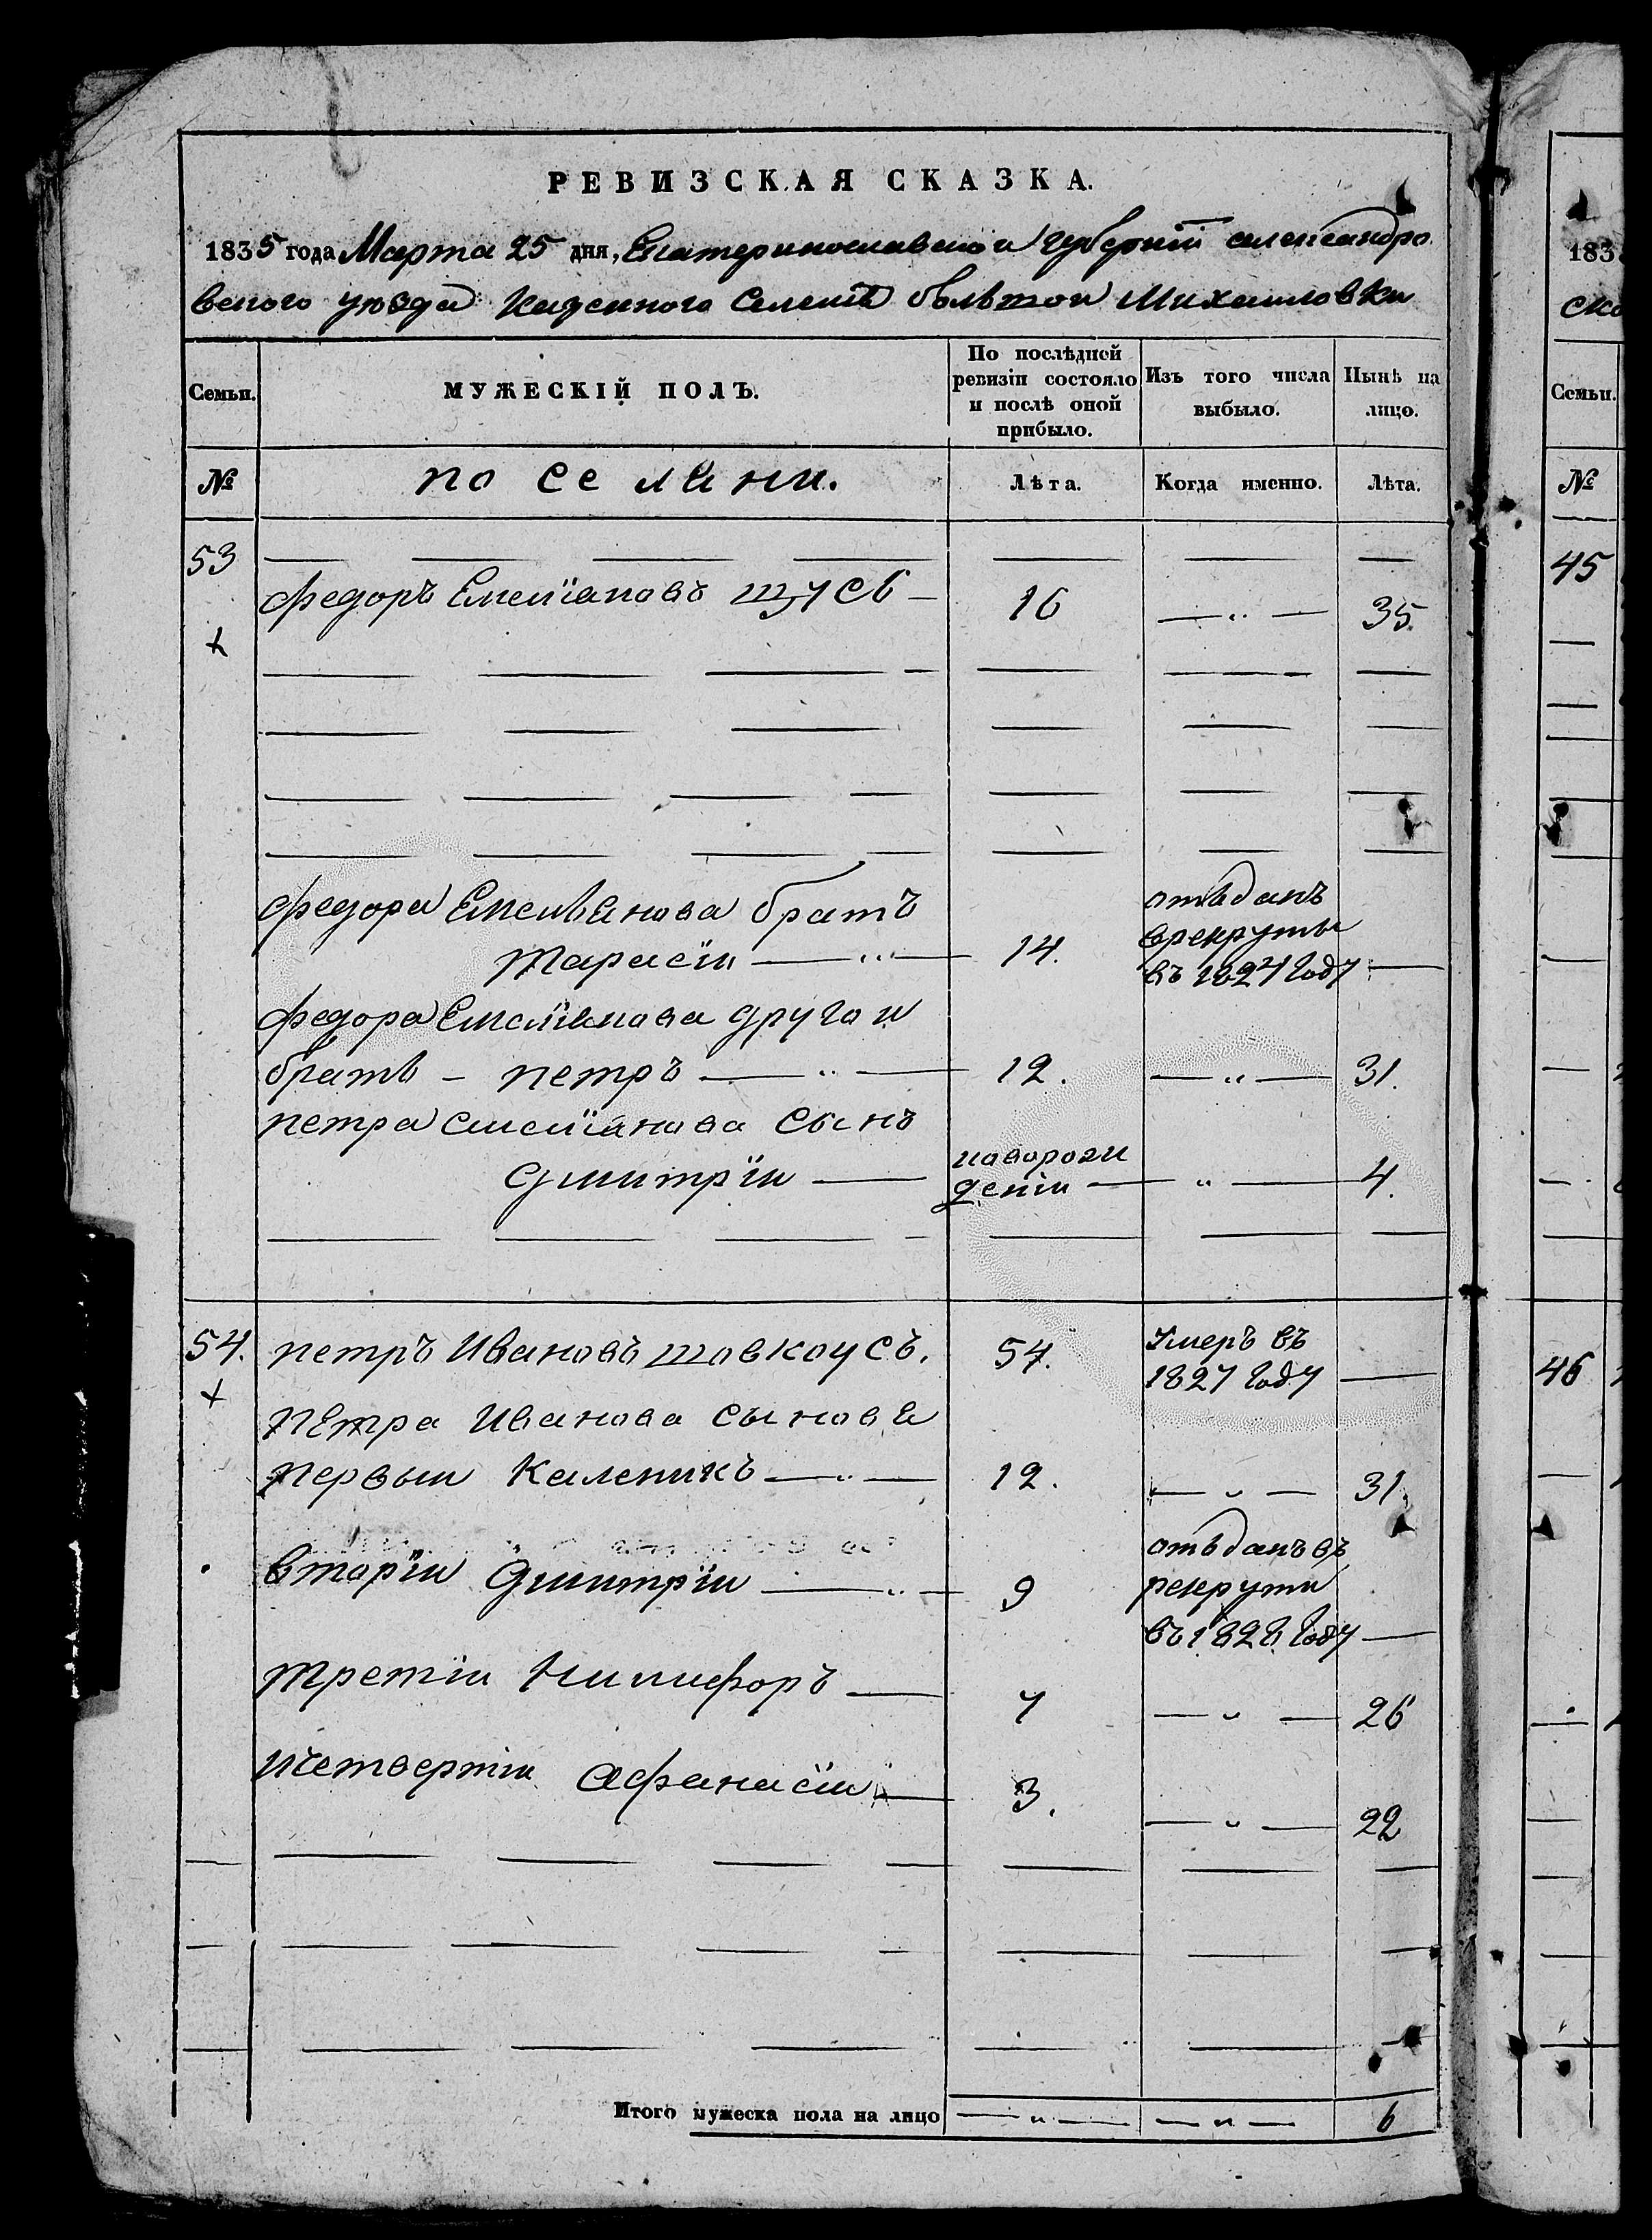 РЕВИЗСКАЯ СКАЗКА.
1835 года Марта 25 дня, Екатеринославской Губернии александро
вского уезда Казенного Селения большой Михаиловки
Семьи. МУЖЕСКІЙ ПОЛЪ. По послѣдней ревизіи состояло и послѣ оной прибыло. Изъ того числа выбыло. Нынѣ на лицо.
№ поселяни. Лѣта. Когда именно. Лѣта.
53
федоръ Емеліановъ шусь 16 35.
федора Емельянова братъ
тарасіи 14. отъданъ врекруты въ 1824 году
федора Емеліанова другои
братъ петръ 12. 31.
петра емеліанова сынъ
дмитріи новорож дении 4.
54. петръ Ивановъ шовкоусъ. 54. Умеръ въ 1827 году
петра Иванова сыновя
первыи Каленикъ 12. 31.
вторіи дмитріи 9 отъданъ въ рекрути въ 1828 году
третіи Никифоръ 7 26
четвертіи афанасіи 3. 22
Итого мужеска пола на лицо 6
183
ско
Семьи.
№
45
46